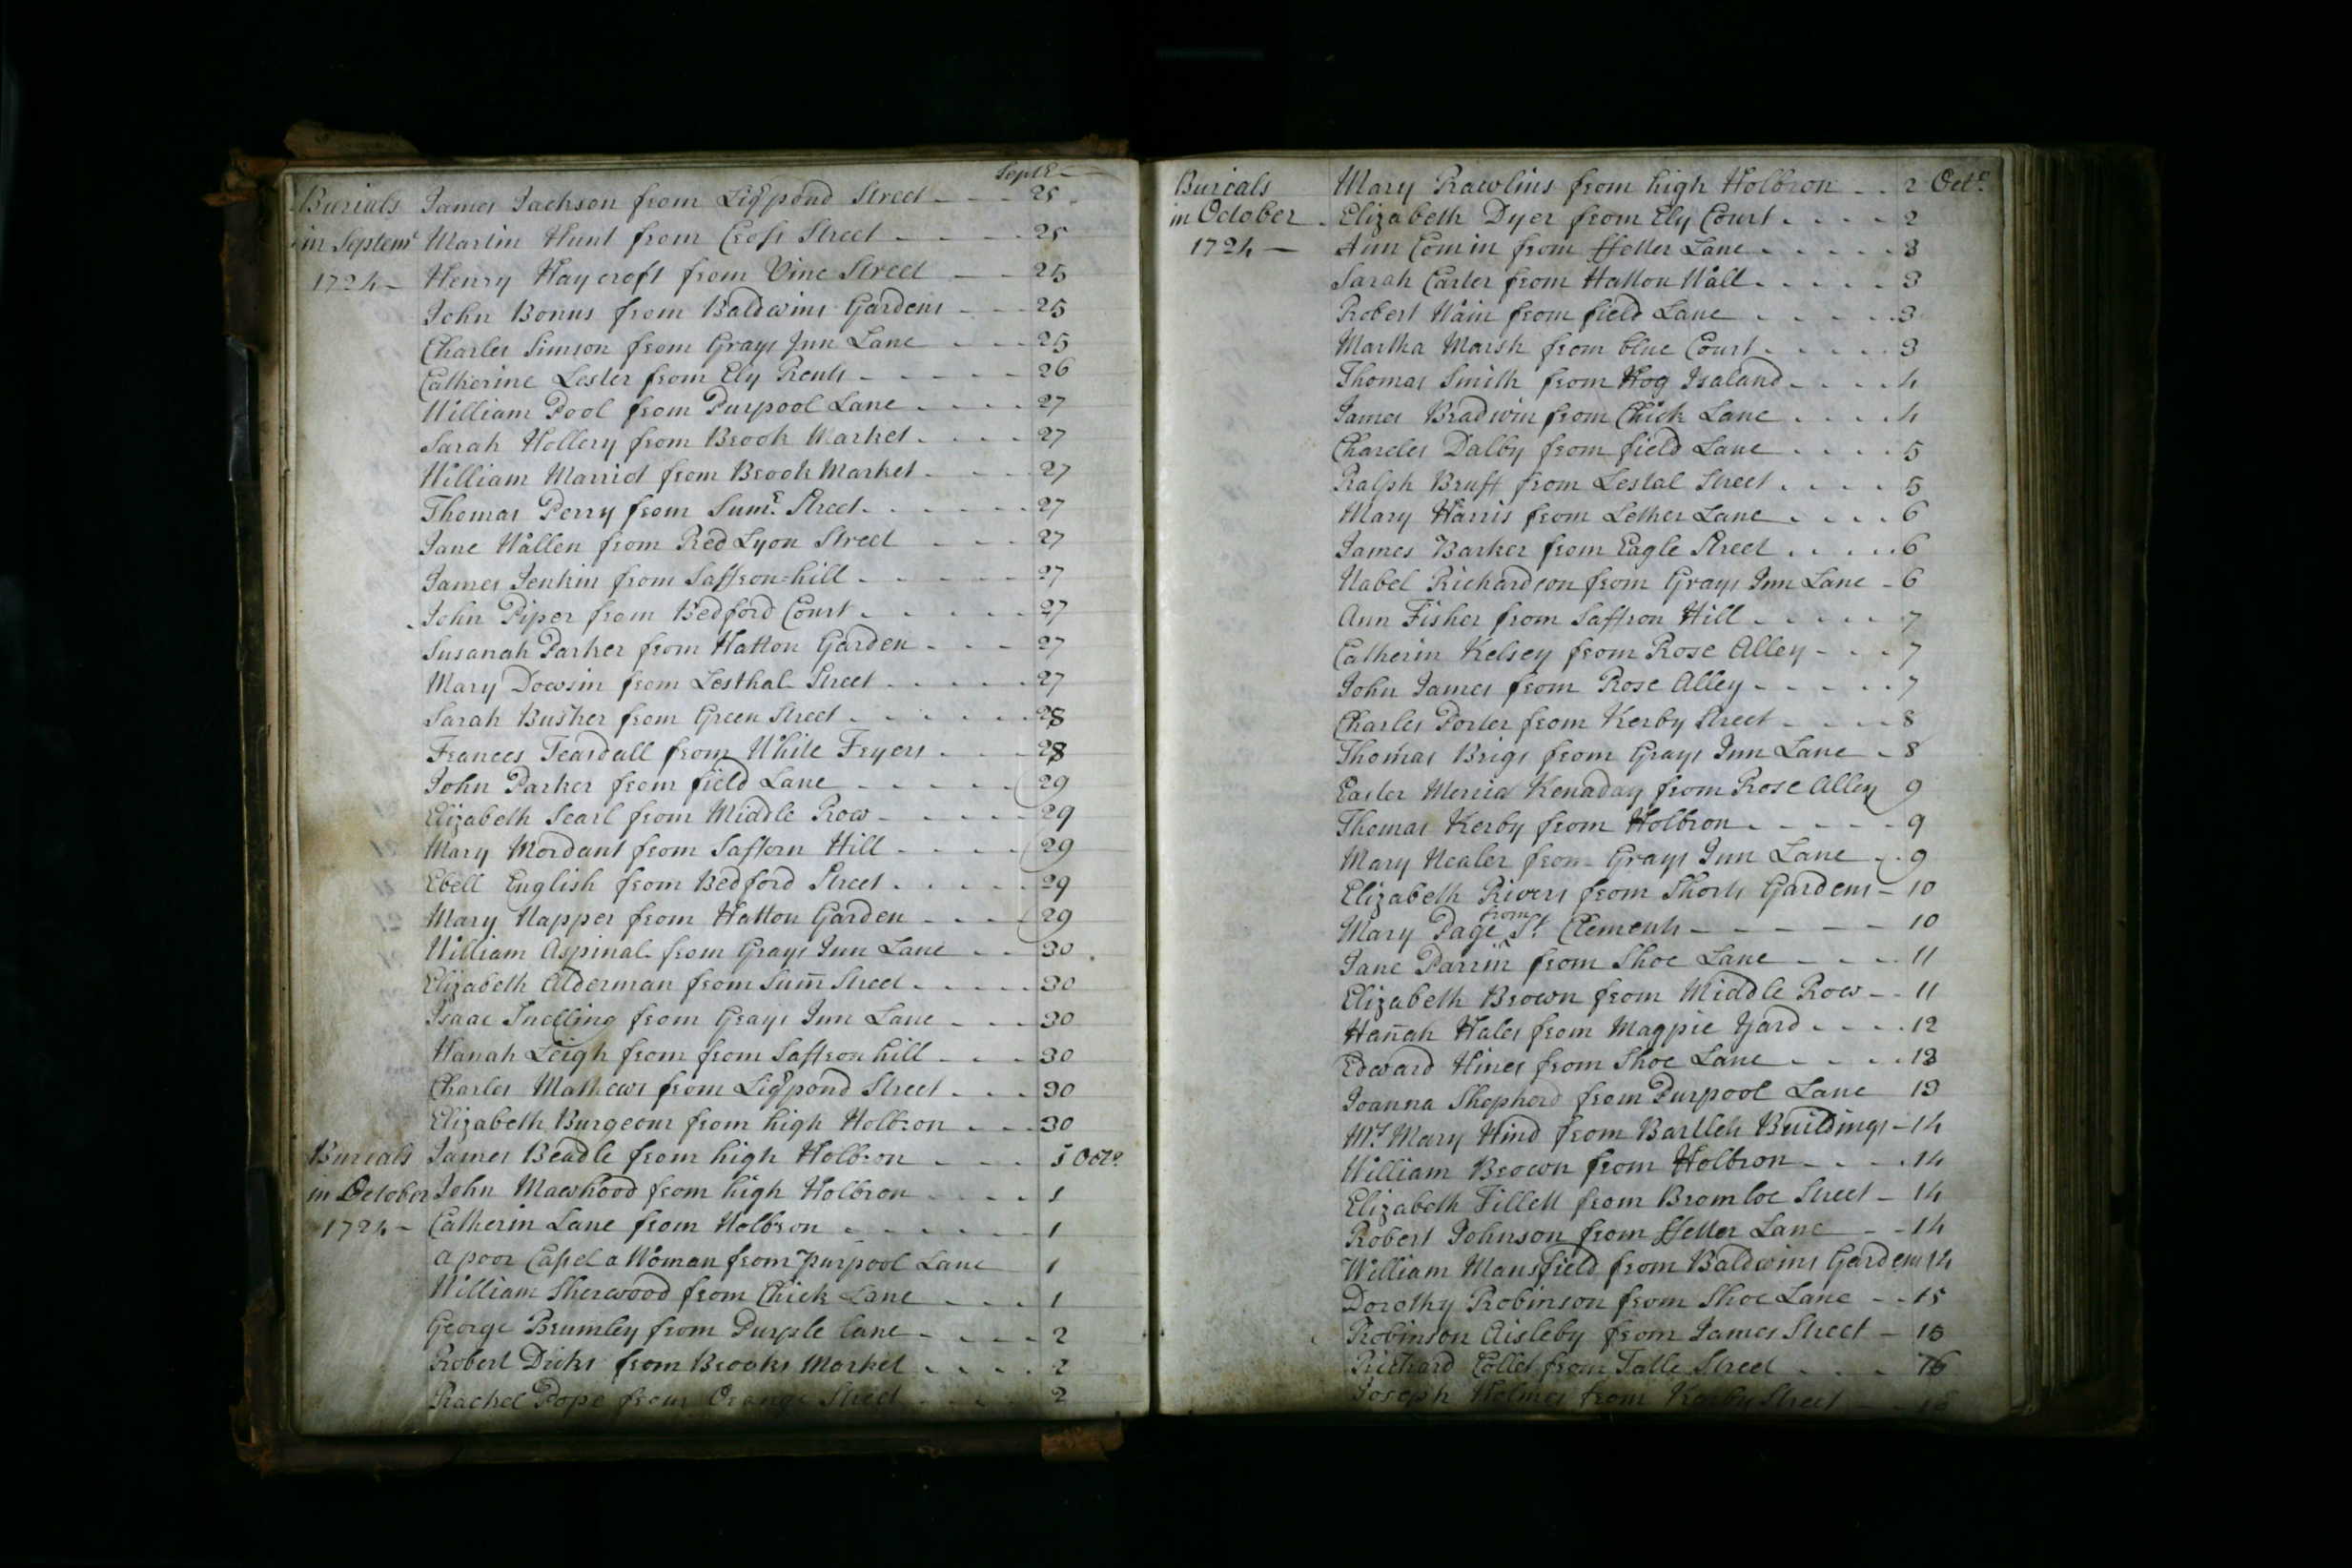 Septr
Burials James Jackson from Liqrpond Street 25
in Septemr Martin Hunt from Cross Street 25
1724 Henry Haycroft from Vine Street 25
John Bonus from Baldwins Gardens 25
Charles Simson from Grays Inn Lane 25
Catherine Lester from Ely Rents 26
William Pool from Purpool Lane 27
Sarah Hollery from Brook Market 27
William Marriot from Brook Market 27
Thomas Perry from Sumr Street 27
Jane Wallen from Red Lyon Street 27
James Jenkin from Saffron=hill 27
John Piper from Bedford Court 27
Susanah Parker from Hatton Garden 27
Mary Dowsin from Lesthal Street 27
Sarah Busher from Green Street 28
Frances Teardall from White Fryers 28
John Parker from field Lane 29
Elizabeth Searl from Middle Row 29
Mary Mordant from Safforn Hill 29
Ebell English from Bedford Street 29
Mary Napper from Hatton Garden 29
William Aspinal from Grays Inn Lane 30
Elizabeth Alderman from Sum̄ Street 30
Isaac Snelling from Grays Inn Lane 30
Hanah Leigh from from Saffron hill 30
Charles Mathews from Liqrpond Street 30
Elizabeth Burgeour from high Holbron 30
Burials James Beadle from high Holbron 1 Octr
in October John Mawhood from high Holbron 1
1724 Catherin Lane from Holbron 1
a poor Casel a Woman from purpool Lane 1
William Sherwood from Chick Lane 1
George Brumley from Purple lane 2
Robert Dicks from Brooks Market 2
Rachel Pope from Orange Street 2
Burials Mary Rawlins from high Holbron 2 Octr
in October Elizabeth Dyer from Ely Court 2
1724 Ann Comin from ffetter Lane 3
Sarah Carter from Hatton Wall 3
Robert Wain from field Lane 3
Martha Marsh from blue Court 3
Thomas Smith from Hog Isaland 4
James Bradwin from Chick Lane 4
Charcles Dalby from field Lane 5
Ralph Bruff from Lestal Street 5
Mary Harris from Lether Lane 6
James Barker from Eagle Street 6
Mabel Richardson from Grays Inn Lane 6
Ann Fisher from Saffron Hill 7
Catherin Kelsey from Rose Alley 7
John James from Rose Alley 7
Charles Porter from Kerby Street 8
Thomas Brigs from Grays Inn Lane 8
Easter Merria Kenaday from Rose Alley 9
Thomas Kerby from Holbron 9
Mary Nealer from Grays Inn Lane 9
Elizabeth Rivers from Shorts Gardens 10
Mary Page from St Clements 10
Jane Parrin from Shoe Lane 11
Elizabeth Brown from Middle Row 11
Han̄ah Hales from Magpie Yard 12
Edward Hines from Shoe Lane 13
Joanna Shepherd from Purpool Lane 13
Mrs Mary Hind from Bartleh Buildings 14
William Brown from Holbron 14
Elizabeth Fillett from Bromloe Street 14
Robert Johnson from ffetter Lane 14
William Mansfield from Baldwins Gardens 14
Dorothy Robinson from Shoe Lane 15
Robinson Aisleby from James Street 15
Richard Collet from Tatle Street 16
Joseph Holmes from Kerby Street